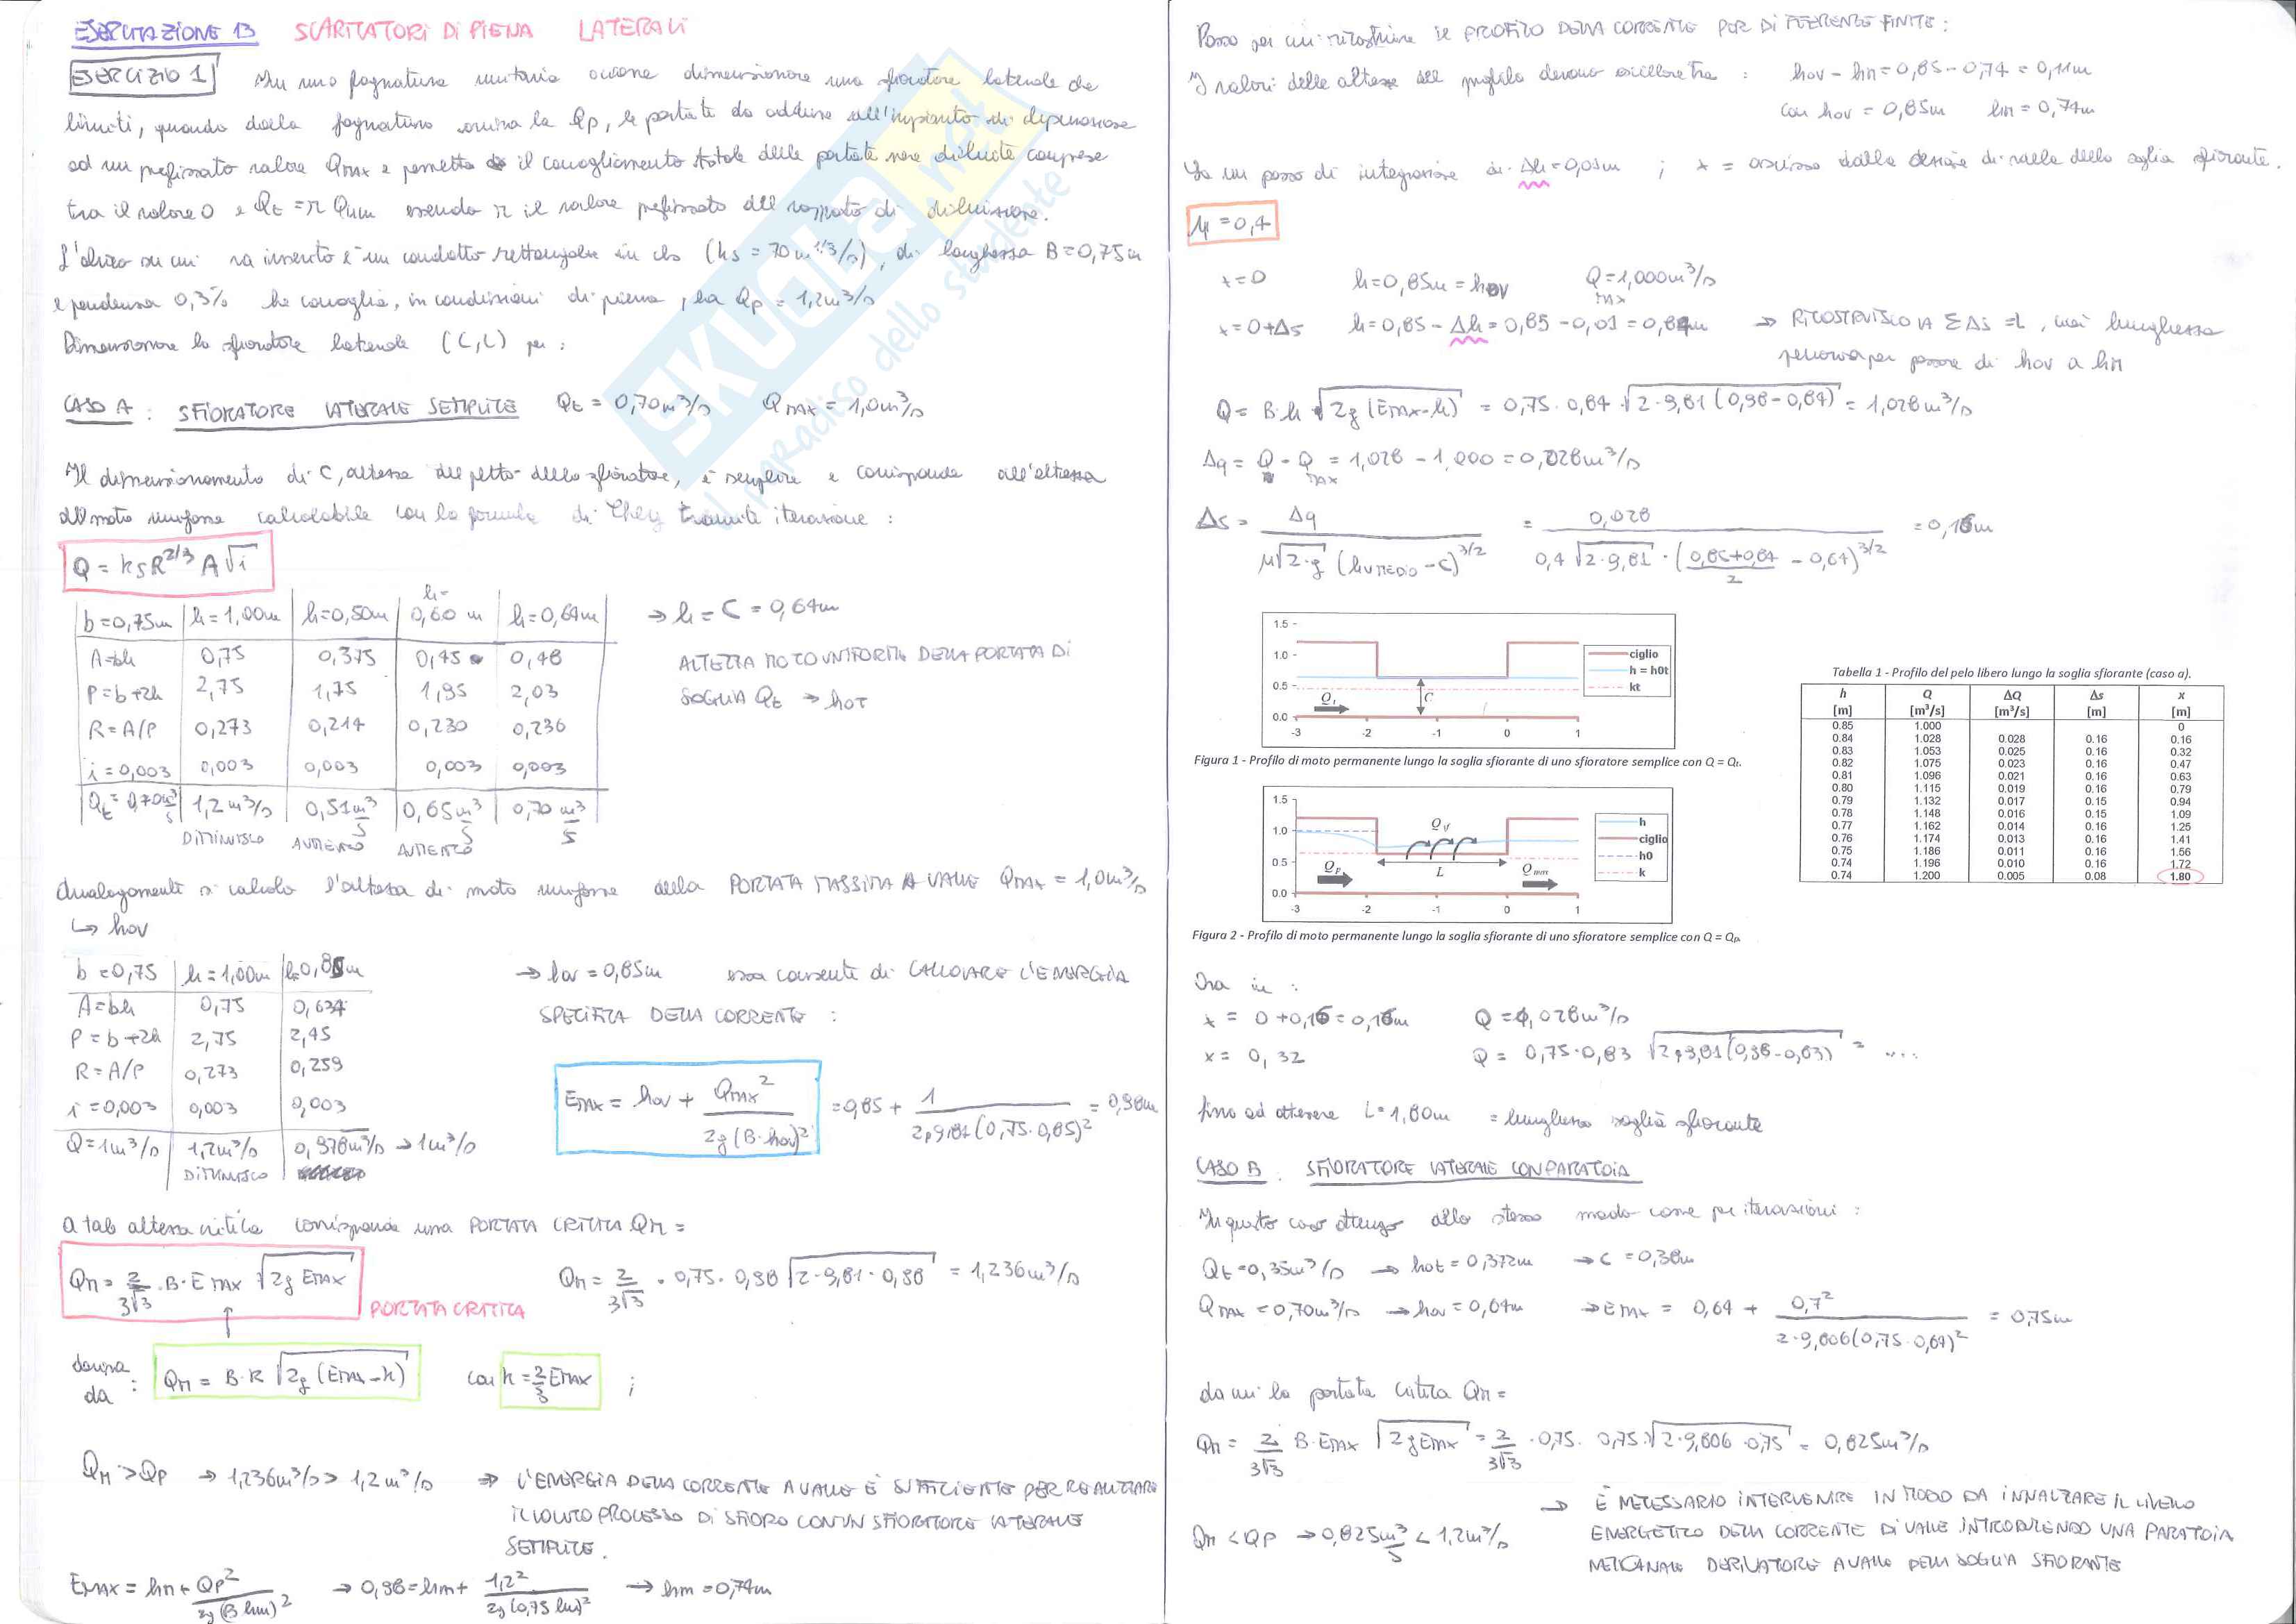 ESERCITAZIONE 13 SCARICATORI DI PIENA LATERALI
ESERCIZIO 1 In una fognatura unitaria occorre dimensionare uno sfioratore laterale che
limiti, quando dalla fognatura arriva la Qp, le portate da addurre all'impianto di depurazione
ad un prefissato valore Qmax e permetta il convogliamento totale delle portate nere diluite comprese
tra il valore 0 e Qt = n Qnm essendo n il valore prefissato del rapporto di diluizione.
L'alveo su cui va inserito è un condotto rettangolare in cls (ks = 70 m^1/3/s), di larghezza B = 0,75m
e pendenza 0,3% che convoglia, in condizioni di piena, la Qp = 1,2 m³/s
Dimensionare lo sfioratore laterale (C, L) per :
CASO A : SFIORATORE LATERALE SEMPLICE Qt = 0,70 m³/s Qmax = 1,0 m³/s
Il dimensionamento di C, altezza del petto dello sfioratore, è semplice e corrisponde all'altezza
del moto uniforme calcolabile con la formula di Chezy tramite iterazione :
Q = ks R^2/3 A √i
b=0,75m h=1,00m h=0,50m h=0,60 m h=0,64m
A=bh 0,75 0,375 0,45 0,48
P=b+2h 2,75 1,75 1,95 2,03
R=A/P 0,273 0,214 0,230 0,236
i=0,003 0,003 0,003 0,003 0,003
Qt=0,70 m³/s 1,2 m³/s 0,51 m³/s 0,65 m³/s 0,70 m³/s
DIMINUISCO AUMENTO AUMENTO
→ h = C = 0,64m
ALTEZZA MOTO UNIFORME DELLA PORTATA DI
SOGLIA Qt → hot
Analogamente si calcola l'altezza di moto uniforme della PORTATA MASSIMA A VALLE Qmax = 1,0 m³/s
↳ hov
b=0,75 h=1,00m h=0,85m
A=bh 0,75 0,634
P=b+2h 2,75 2,45
R=A/P 0,273 0,259
i=0,003 0,003 0,003
Q=1m³/s 1,2m³/s 0,978m³/s → 1m³/s
DIMINUISCO
→ hov = 0,85m essa consente di CALCOLARE L'ENERGIA
SPECIFICA DELLA CORRENTE :
Emax = hov + Qmax² / 2g (B·hov)² = 0,85 + 1 / 2·9,81 (0,75·0,85)² = 0,98m
A tale altezza critica corrisponde una PORTATA CRITICA QM =
QM = 2/3√3 · B · Emax √2g Emax
PORTATA CRITICA
QM = 2/3√3 · 0,75 · 0,98 √2·9,81·0,98 = 1,236 m³/s
da : QM = B·k √2g (Emax-k) con k = 2/3 Emax ;
QM > Qp → 1,236m³/s > 1,2 m³/s ⇒ L'ENERGIA DELLA CORRENTE A VALLE È SUFFICIENTE PER REALIZZARE
IL VOLUTO PROCESSO DI SFIORO CON UN SFIORATORE LATERALE
SEMPLICE.
Emax = hm + Qp² / 2g (B hm)² → 0,98 = hm + 1,2² / 2g (0,75 hm)² → hm = 0,74m
Posso per cui ricostruire il PROFILO DELLA CORRENTE PER DIFFERENZE FINITE :
I valori delle altezze del profilo devono oscillare tra : hov - hm = 0,85 - 0,74 = 0,11m
con hov = 0,85m hm = 0,74m
Ho un passo di integrazione di Δh = 0,01m ; x = ascissa dalla sezione di valle della soglia sfiorante.
μ = 0,4
x=0 h=0,85m = hov Qmax = 1,000 m³/s
x=0+Δs h=0,85 - Δh = 0,85 - 0,01 = 0,84m → RICOSTRUISCO LA ΣΔs = L, cioè lunghezza
necessaria per passare di hov a hm
Q = B·h √2g (Emax-h) = 0,75·0,84·√2·9,81 (0,98-0,84) = 1,028 m³/s
Δq = Q - Qmax = 1,028 - 1,000 = 0,028 m³/s
Δs = Δq / μ√2·g (hmedio - C)^3/2 = 0,028 / 0,4 √2·9,81 · (0,85+0,84 / 2 - 0,64)^3/2 = 0,16m
1.5
1.0
0.5
0.0
-3 -2 -1 0 1
Qt
C
ciglio
h = h0t
kt
Figura 1 - Profilo di moto permanente lungo la soglia sfiorante di uno sfioratore semplice con Q = Qt.
1.5
1.0
0.5
0.0
-3 -2 -1 0 1
Qp
Qsf
L
Qmax
h
ciglio
h0
k
Figura 2 - Profilo di moto permanente lungo la soglia sfiorante di uno sfioratore semplice con Q = Qp.
Tabella 1 - Profilo del pelo libero lungo la soglia sfiorante (caso a).
h Q ΔQ Δs x
[m] [m³/s] [m³/s] [m] [m]
0.85 1.000 0
0.84 1.028 0.028 0.16 0.16
0.83 1.053 0.025 0.16 0.32
0.82 1.075 0.023 0.16 0.47
0.81 1.096 0.021 0.16 0.63
0.80 1.115 0.019 0.16 0.79
0.79 1.132 0.017 0.15 0.94
0.78 1.148 0.016 0.15 1.09
0.77 1.162 0.014 0.16 1.25
0.76 1.174 0.013 0.16 1.41
0.75 1.186 0.011 0.16 1.56
0.74 1.196 0.010 0.16 1.72
0.74 1.200 0.005 0.08 1.80
Ora in :
x = 0+0,16 = 0,16m Q = 1,028 m³/s
x = 0,32 Q = 0,75·0,83 √2·9,81 (0,98-0,83) = ....
fino ad ottenere L = 1,80m = lunghezza soglia sfiorante
CASO B : SFIORATORE LATERALE CON PARATOIA
In questo caso ottengo allo stesso modo come per iterazioni :
Qt = 0,35m³/s → hot = 0,372m → C = 0,38m
Qmax = 0,70m³/s → hov = 0,64m → Emax = 0,64 + 0,7² / 2·9,806 (0,75·0,64)² = 0,75m
da cui la portata critica QM =
QM = 2/3√3 B·Emax √2gEmax = 2/3√3 · 0,75 · 0,75 · √2·9,806·0,75 = 0,825m³/s
QM < QP → 0,825 m³/s < 1,2m³/s
→ È NECESSARIO INTERVENIRE IN MODO DA INNALZARE IL LIVELLO
ENERGETICO DELLA CORRENTE DI VALLE INTRODUCENDO UNA PARATOIA
DERIVATORE A VALLE DELLA SOGLIA SFIORANTE
SKUOLA.net
il paradiso dello studente